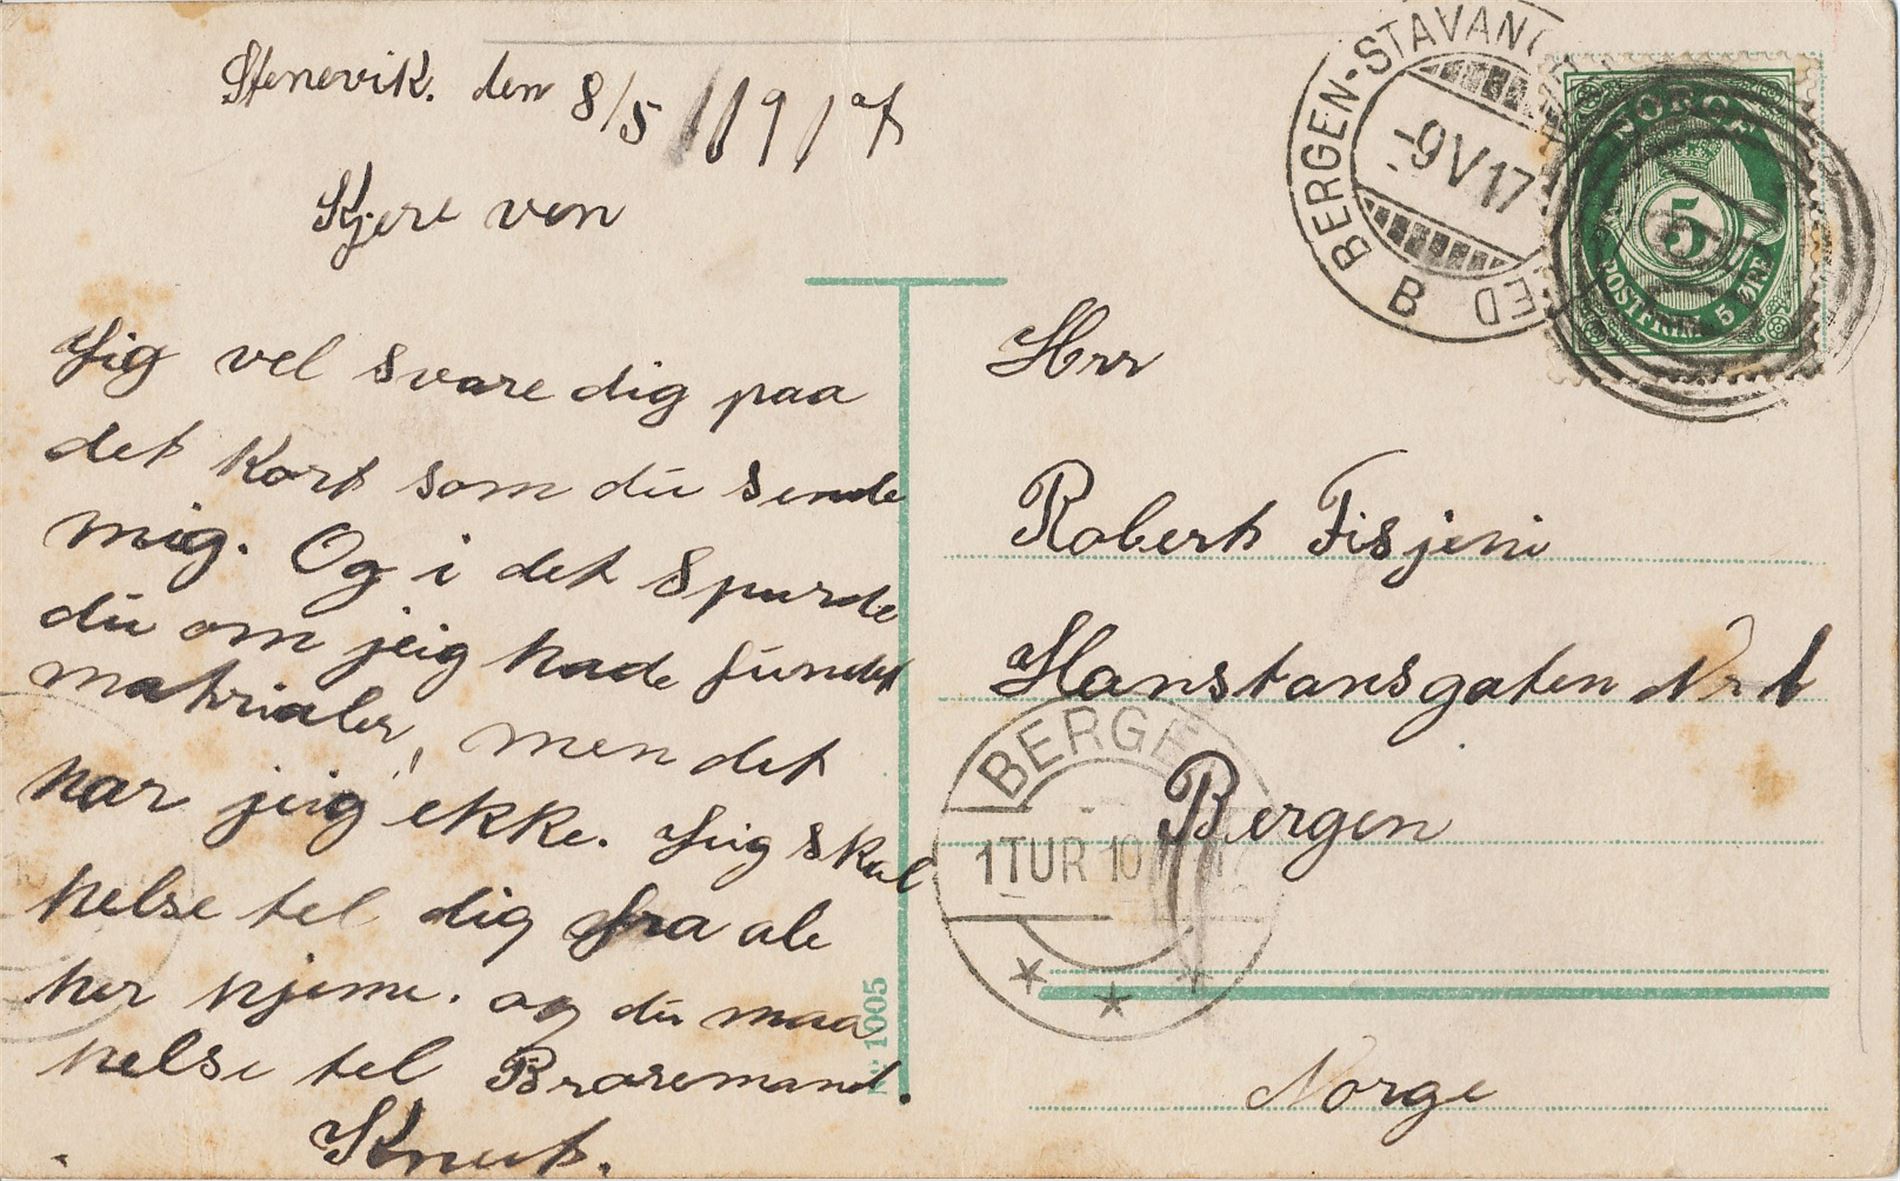 Stenevik. den 8/5 1917
Kjere ven
Jig vel svare dig paa
det Kort som du sende
mig. Og i det spurde
du om jeig hade fundet
matrialer, men det
har jeig ekke. Jeig skal
helse tel dig fra ale
her hjeme. og du maa
helse tel Brosemand.
Knut.
No 1005
BERGEN-STAVAN
-9 V 17
B
ED
NORGE
5
POSTFRIM. 5 ØRE
Hrr
Robert Fisjeni
Hanstansgaten Nr 1
Bergen
Norge
BERGE
1TUR 10